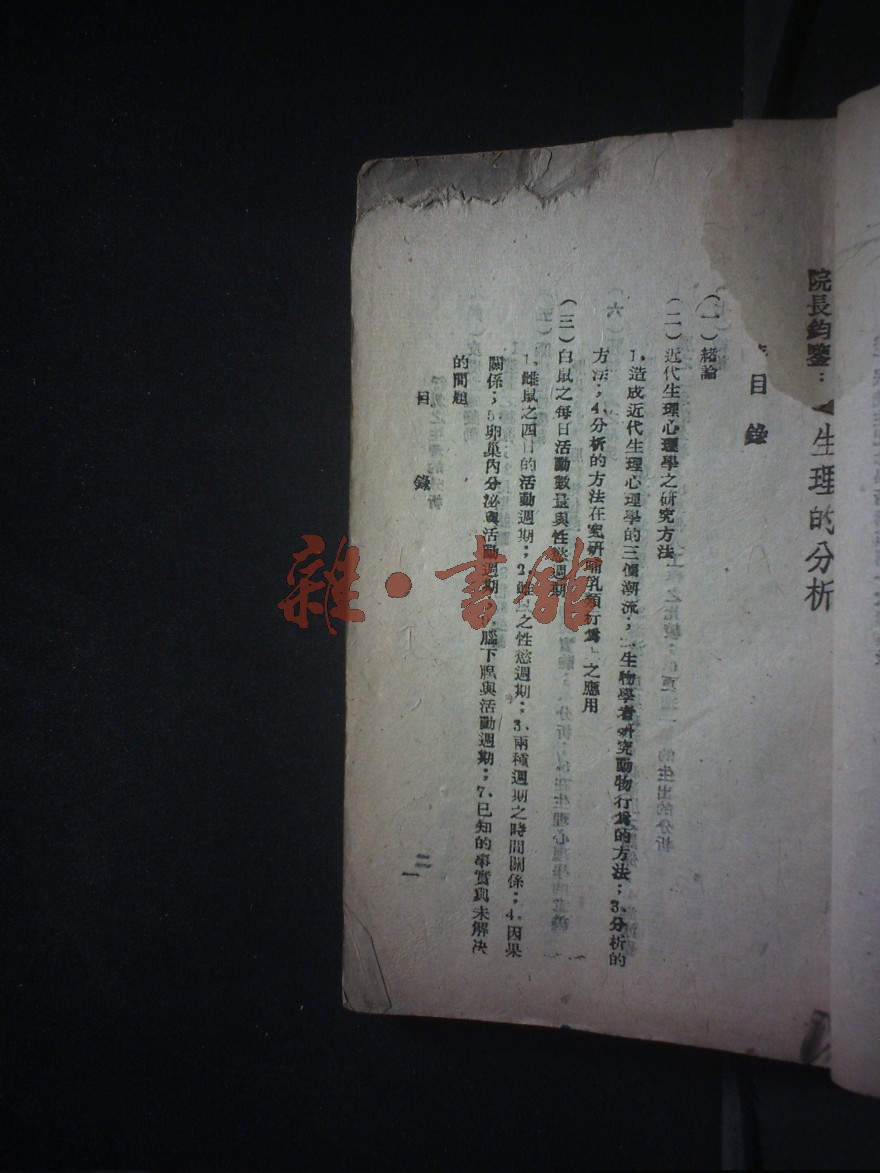 院長鈞鑒：生理的分析
目錄
（一）緒論
（二）近代生理心理學之研究方法
1、造成近代生理心理學的三個潮流；生物學者研究動物行爲的方法；3、分析的
方法；4、分析的方法在究研哺乳類行爲之應用
（三）白鼠之每日活動數量與性慾週期
1、雌鼠之四日的活動週期；2、雌鼠之性慾週期；3、兩種週期之時間關係；4、因果
關係；5、卵巢內分泌與活動週期；腦下腺與活動週期；7、已知的事實與未解决
的問題
目錄
雜·書館